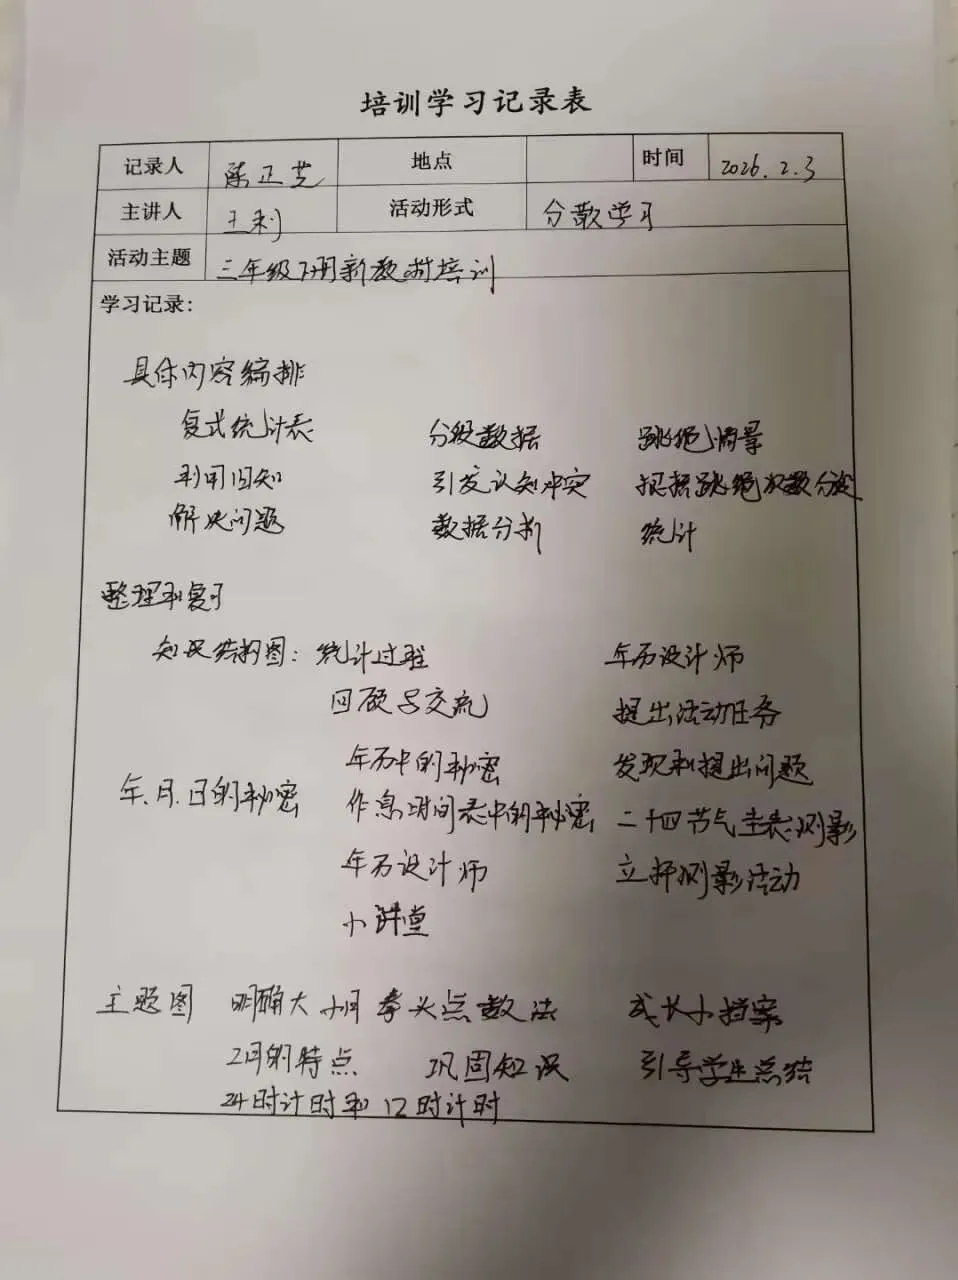 培训学习记录表
记录人 陈正芝 地点 时间 2026.2.3
主讲人 王利 活动形式 分散学习
活动主题 三年级下册新教材培训
学习记录：
具体内容编排
复式统计表 分段数据 跳绳情景
利用旧知 引发认知冲突 根据跳绳次数分段
解决问题 数据分析 统计
整理和复习
知识结构图：统计过程 年历设计师
回顾与交流 提出活动任务
年历中的秘密 发现和提出问题
年、月、日的秘密 作息时间表中的秘密 二十四节气圭表测影
年历设计师 立杆测影活动
小讲堂
主题图 明确大小月 拳头点数法 成长小档案
2月的特点 巩固知识 引导学生总结
24时计时和12时计时